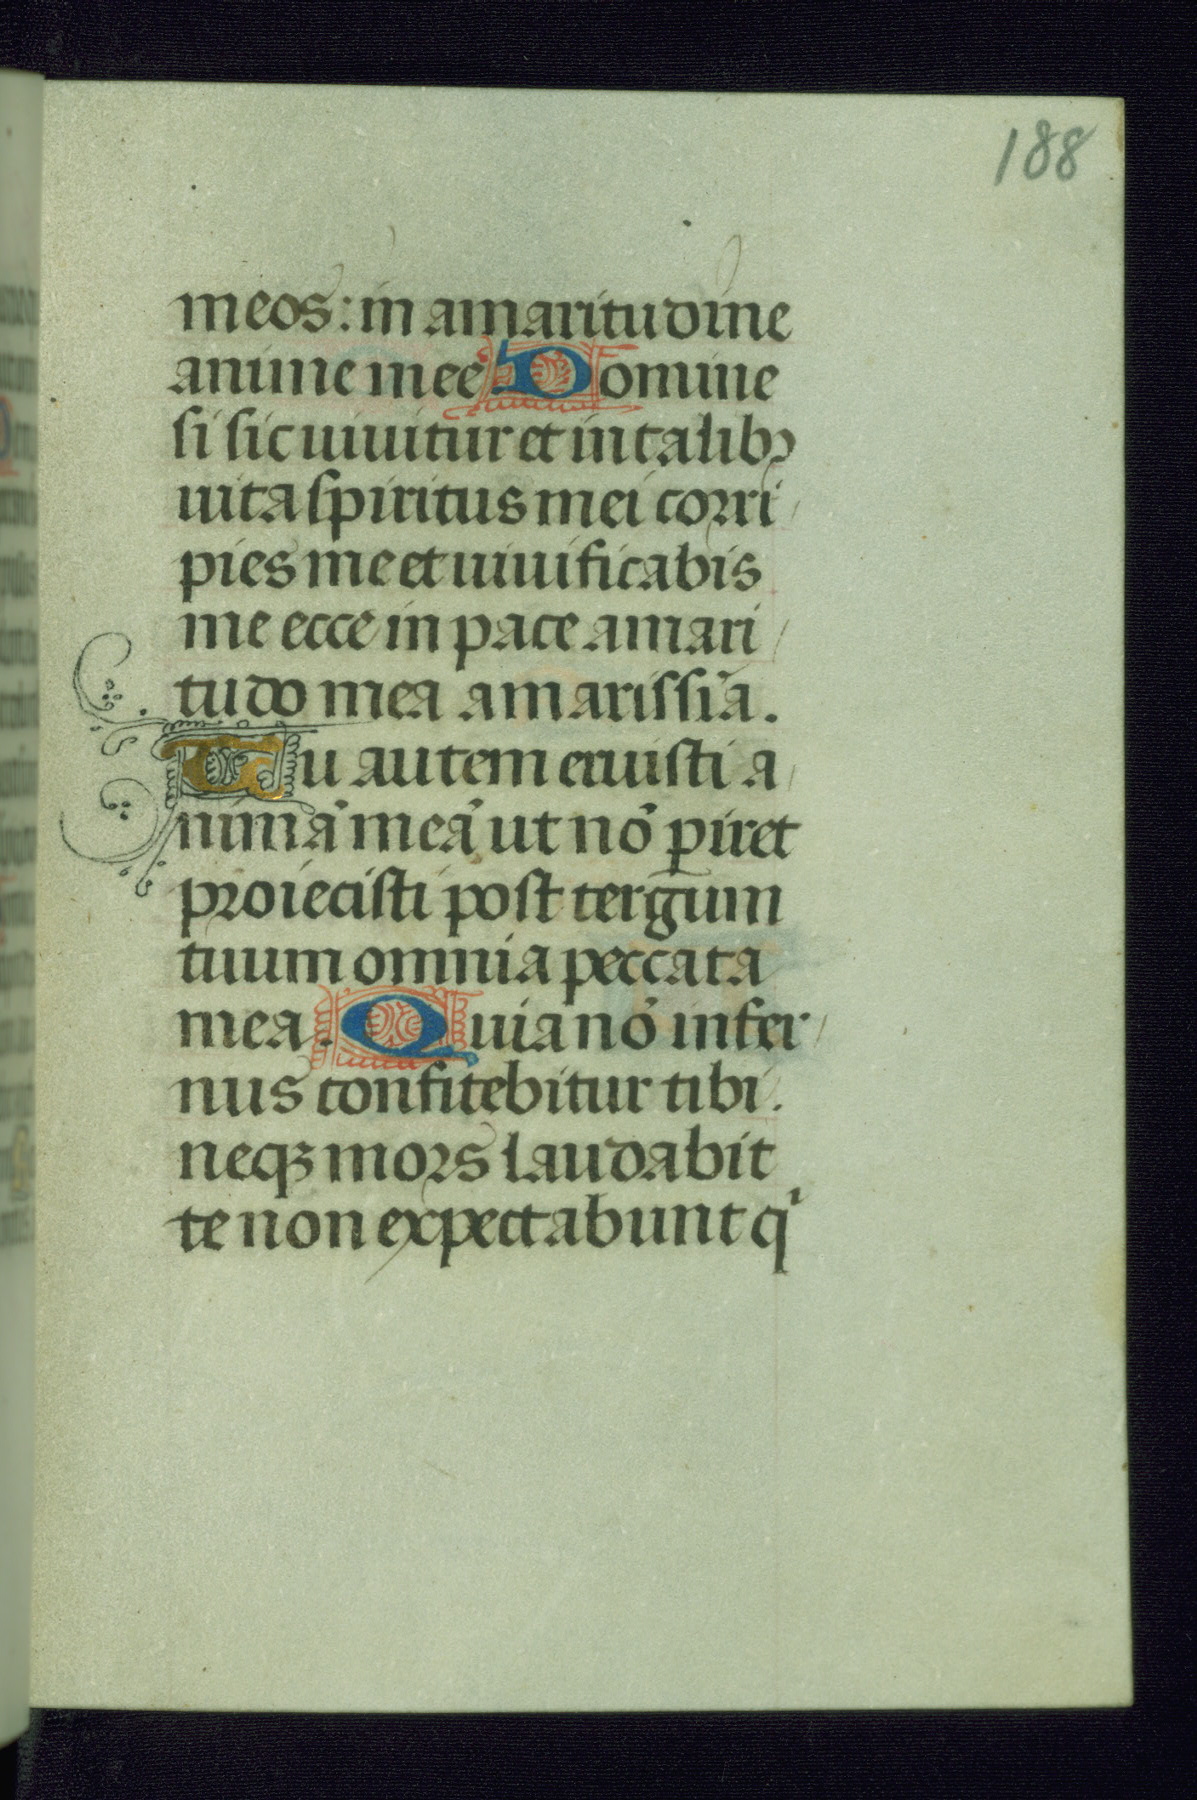 188
meos: in amaritudine
anime mee. Domine
si sic uiuitur et in talibꝰ
uita spiritus mei corri/
pies me et uiuificabis
me ecce in pace amari/
tudo mea amarissīa.
Tu autem eruisti a/
nimā meā ut nō ꝑiret
proiecisti post tergum
tuum omnia peccata
mea. Quia nō infer/
nus confitebitur tibi.
neqꝫ mors laudabit
te non expectabunt qͥ